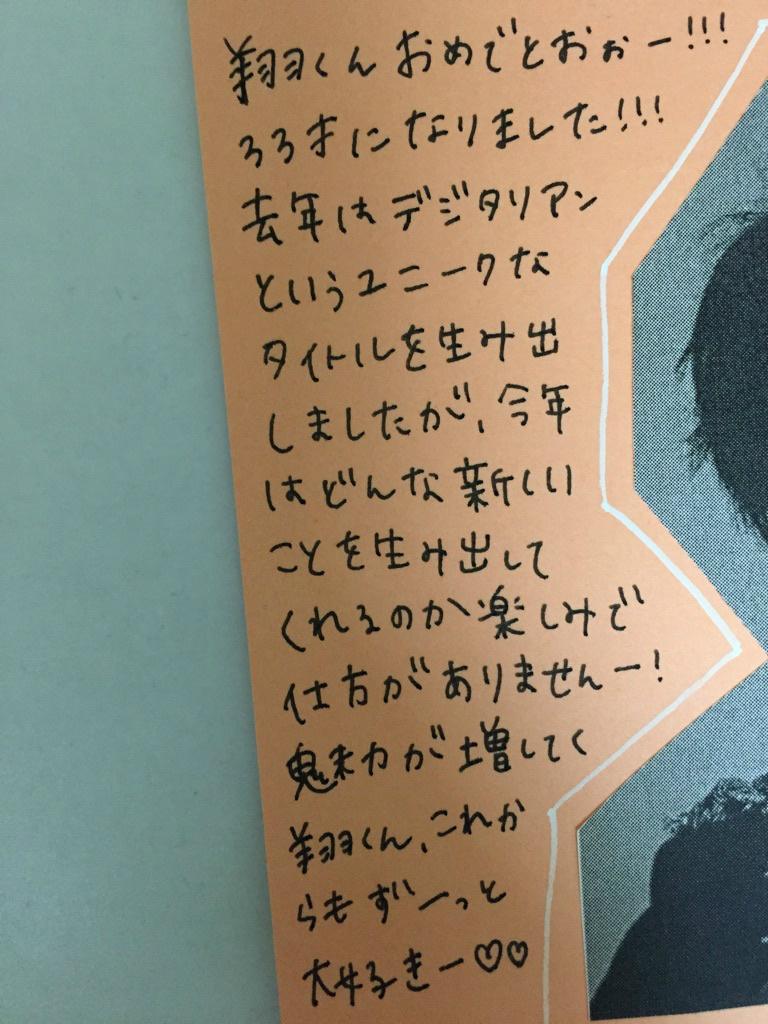 翔くんおめでとおぉー!!!
33才になりました!!!
去年はデジタリアン
というユニークな
タイトルを生み出
しましたが、今年
はどんな新しい
ことを生み出して
くれるのか楽しみで
仕方がありませんー!
魅力が増してく
翔くん、これか
らもずーっと
大好きー♡♡